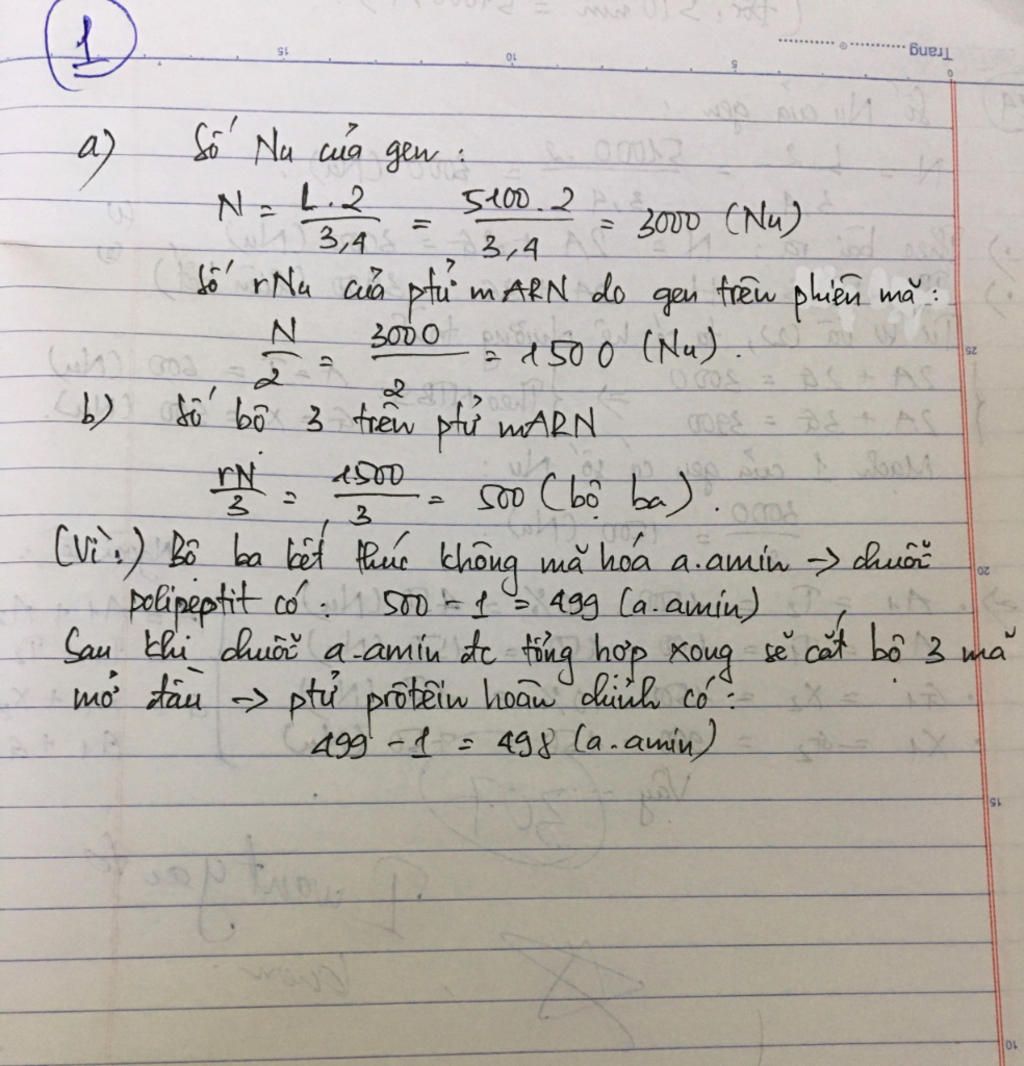 1
Trang
15 10 5 0
a) Số Nu của gen :
N = L . 2 / 3,4 = 5100 . 2 / 3,4 = 3000 (Nu)
Số rNu của ptử mARN do gen trên phiên mã :
N / 2 = 3000 / 2 = 1500 (Nu) .
25
b) Số bộ 3 trên ptử mARN
rN / 3 = 1500 / 3 = 500 (bộ ba) .
(Vì :) Bộ ba kết thúc không mã hóa a.amin → chuỗi
20
polipeptit có : 500 - 1 = 499 (a.amin)
Sau khi chuỗi a.amin đc tổng hợp xong sẽ cắt bộ 3 mã
mở đầu → ptử prôtêin hoàn chỉnh có :
499 - 1 = 498 (a.amin)
15
I want you to
10